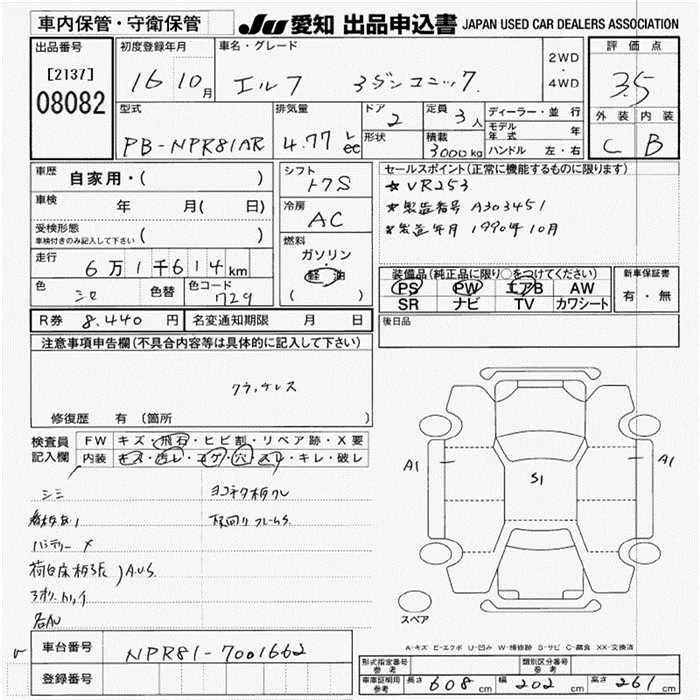 車内保管・守衛保管 JU愛知 出品申込書 JAPAN USED CAR DEALERS ASSOCIATION
出品番号 初度登録年月 車名・グレード 2WD・4WD 評価点
[2137] 08082 16 10月 エルフ 3.5
外装 内装
C B
型式 排気量 ドア 定員 ディーラー・並行
PB-NPR81AR 4.77 L cc 2 3人 モデル年式 年
形状 積載 3000kg ハンドル 左・右
車歴 自家用・( ) シフト セールスポイント(正常に機能するものに限ります)
車検 年 月( 日) 冷房 AC ★VR253
★製造番号 A303451
★製造年月 1990年10月
受検形態 ( )
車検付きのみ記入して下さい
燃料
ガソリン・
軽油
( )
走行 6万1千614km
色 シロ 色替 色コード 729
装備品(純正品に限り○をつけてください) 新車保証書
PS PW エアB AW 有・無
SR ナビ TV カワシート
R券 8,440円 名変通知期限 月 日 後日品
注意事項申告欄(不具合内容等は具体的に記入して下さい)
修復歴 有 (箇所 )
検査員記入欄 FW キズ・飛石・ヒビ割・リペア跡・X要
内装 キズ・汚レ・コゲ・穴・スレ・キレ・破レ
シミ
看板あり
バッテリー×
A1 S1 A1
スペア
A-キズ E-エクボ U-凹み W-補修跡 S-サビ C-腐食 XX-交換済
車台番号 NPR81-7001662
登録番号
形式指定番号 参考 類別区分番号 参考
車庫証明用 参考 長さ 608cm 幅 202cm 高さ 261cm